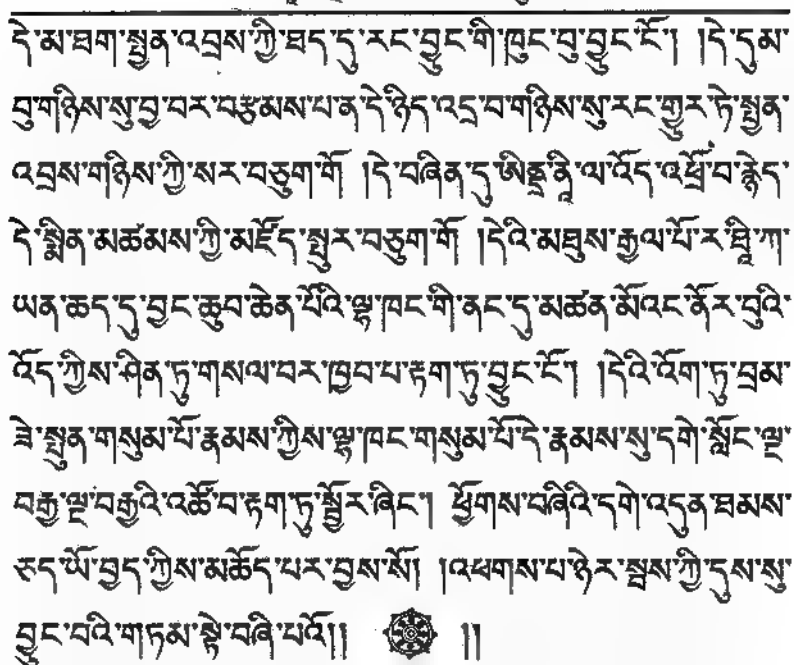 དེ་མ་ཐག་སྤྱན་འབྲས་ཀྱི་ཐད་དུ་རང་བྱུང་གི་ཁུང་བུ་བྱུང་ངོ༌། །དེ་དུམ་
བུ་གཉིས་སུ་བྱ་བར་བརྩམས་པ་ན་དེ་ཉིད་འདྲ་བ་གཉིས་སུ་རང་གྱུར་ཏེ་སྤྱན་
འབྲས་གཉིས་ཀྱི་སར་བཅུག་གོ །དེ་བཞིན་དུ་ཨིནྡྲ་ནཱི་ལ་འོད་འཕྲོ་བ་རྙེད་
དེ་སྨིན་མཚམས་ཀྱི་མཛོད་སྤུར་བཅུག་གོ །དེའི་མཐུས་རྒྱལ་པོ་ར་ཐཱི་ཀ་
ཡན་ཆད་དུ་བྱང་ཆུབ་ཆེན་པོའི་ལྷ་ཁང་གི་ནང་དུ་མཚན་མོའང་ནོར་བུའི་
འོད་ཀྱིས་ཤིན་ཏུ་གསལ་བར་ཁྱབ་པ་རྟག་ཏུ་བྱུང་ངོ༌། །དེའི་འོག་ཏུ་བྲམ་
ཟེ་སྤུན་གསུམ་པོ་རྣམས་ཀྱིས་ལྷ་ཁང་གསུམ་པོ་དེ་རྣམས་སུ་དགེ་སློང་ལྔ་
བརྒྱ་ལྔ་བརྒྱའི་འཚོ་བ་རྟག་ཏུ་སྦྱོར་ཞིང༌། ཕྱོགས་བཞིའི་དགེ་འདུན་ཐམས་
ཅད་ཡོ་བྱད་ཀྱིས་མཆོད་པར་བྱས་སོ། །འཕགས་པ་ཉེར་སྦས་ཀྱི་དུས་སུ་
བྱུང་བའི་གཏམ་སྟེ་བཞི་པའོ།། །།